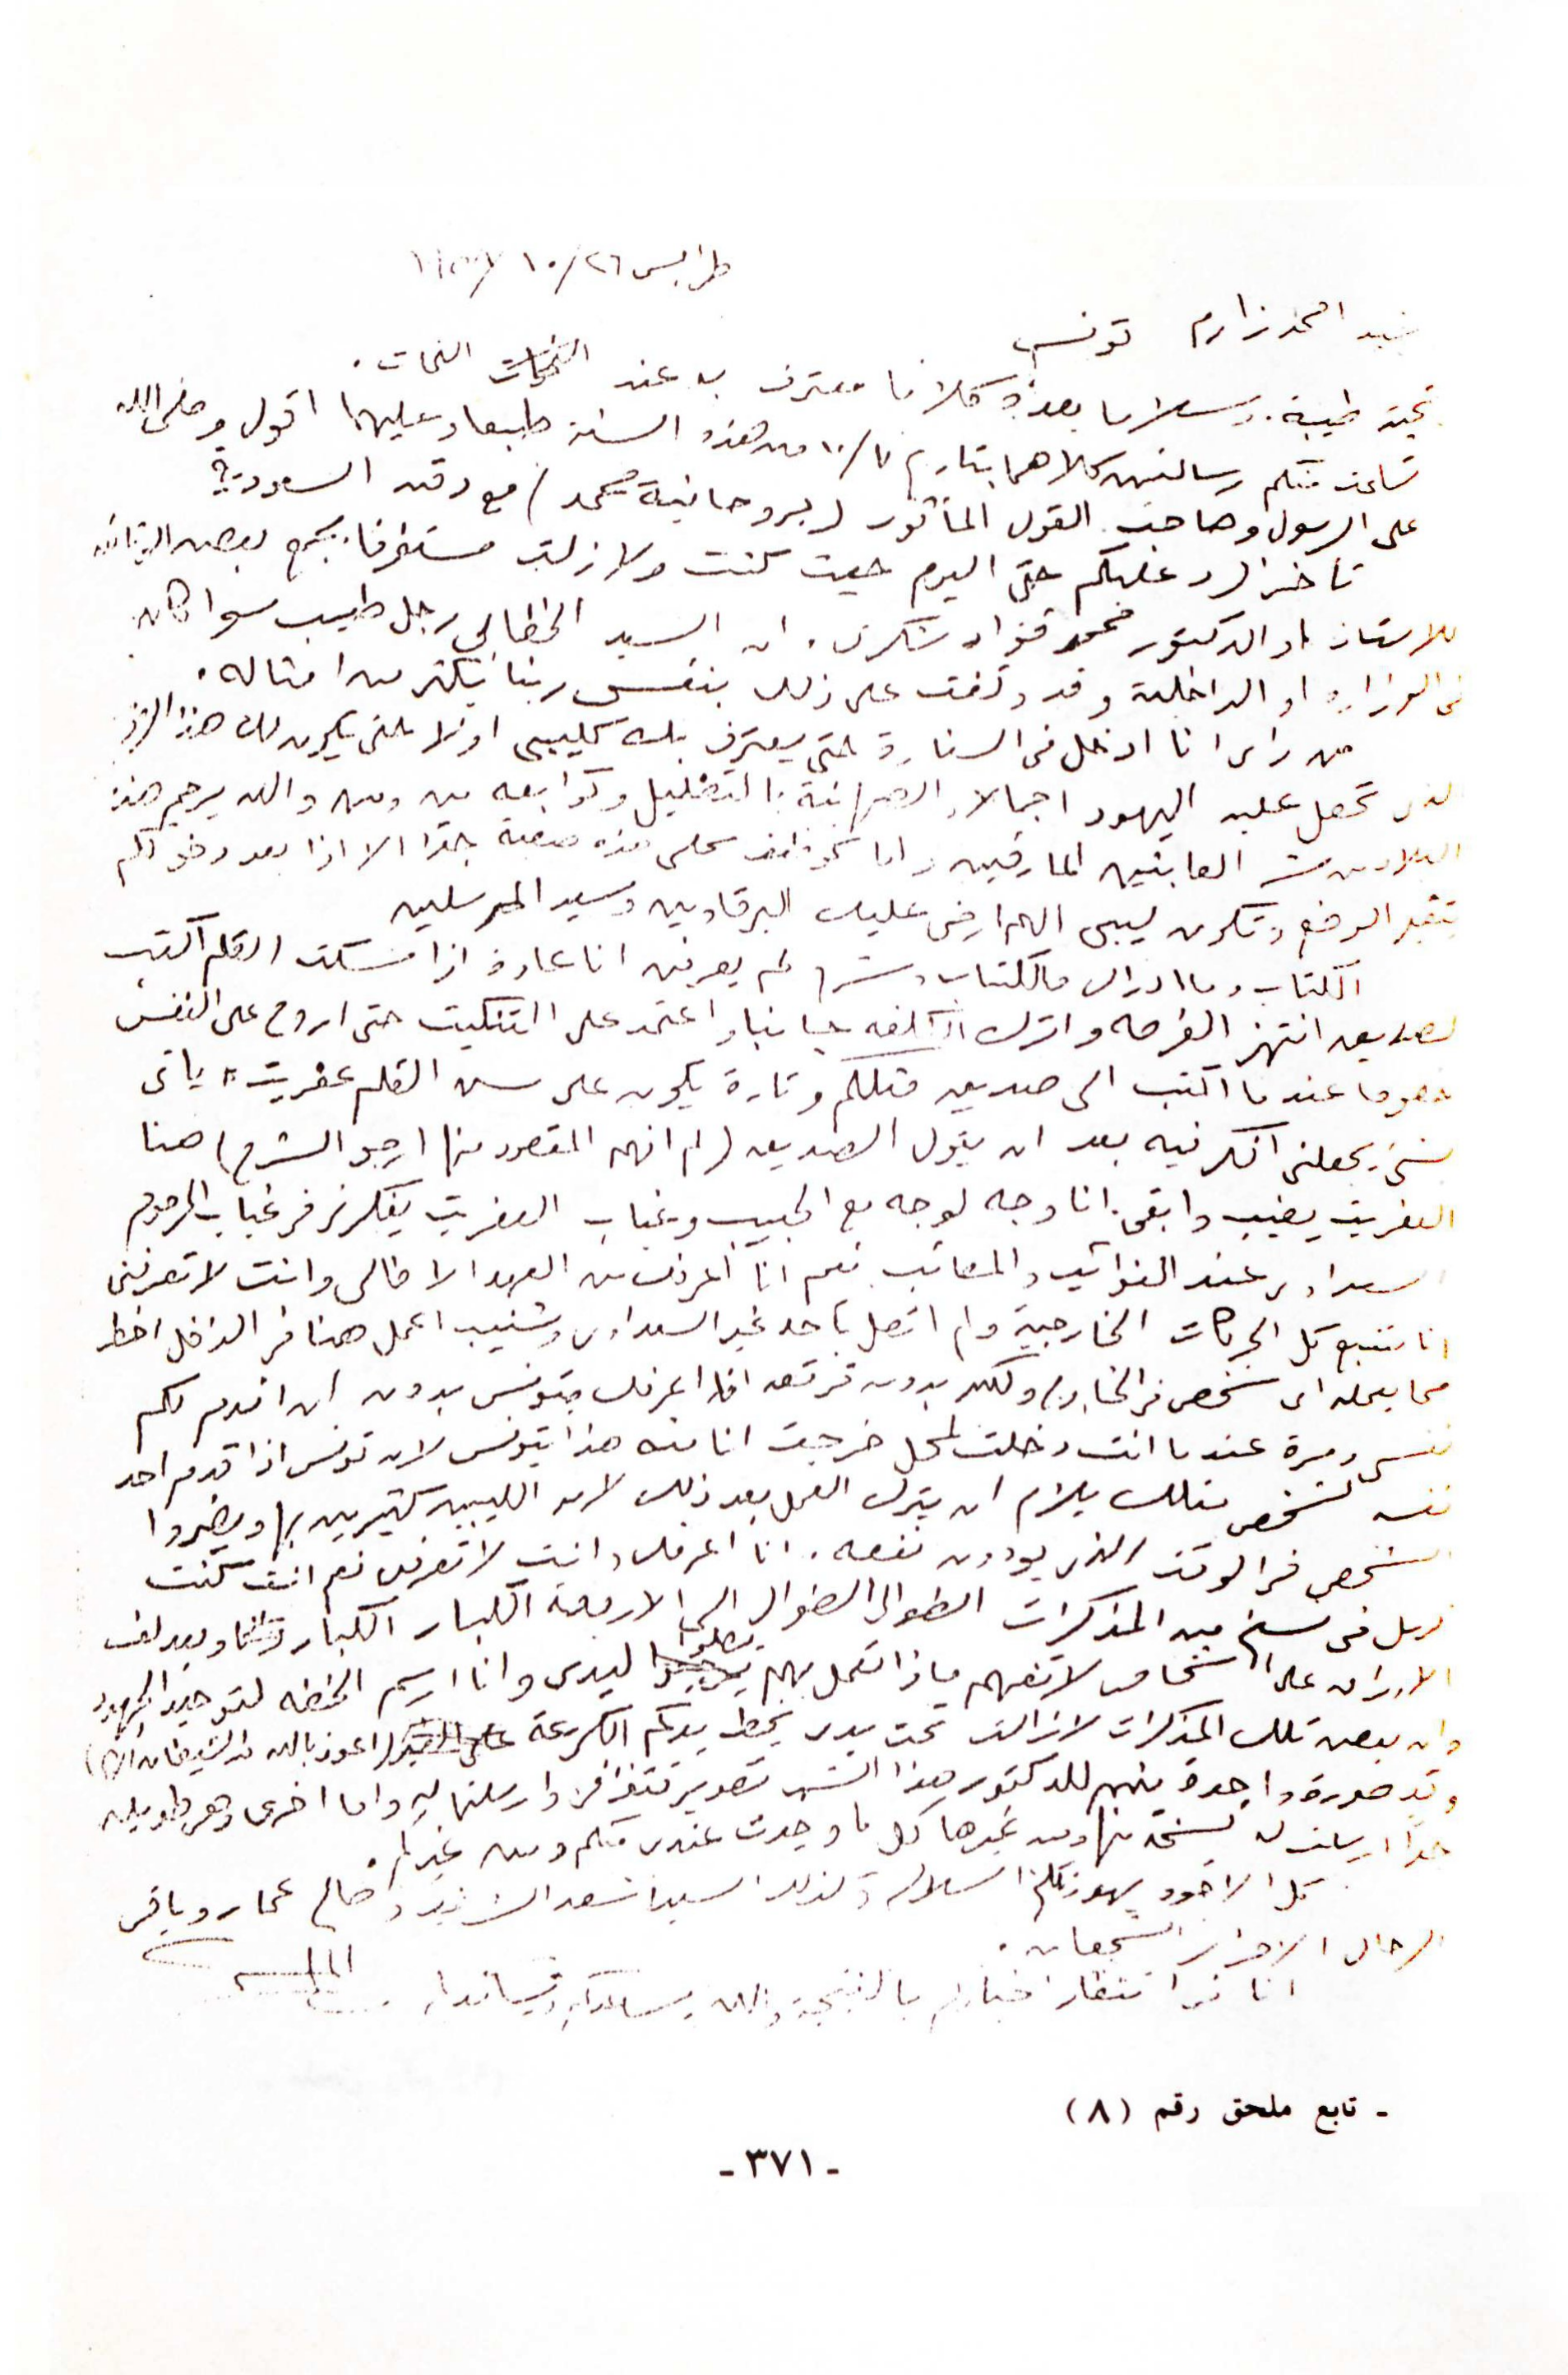 طرابلس ٢٦/١٠/
السيد احمد زارم تونس
تحية طيبة. وسلاما بعده كلاما معترف به عند النحات.
تسلمت منكم رسالتين كلاهما بتاريخ ١٠/ من هذه السنة طبعا وعليهما اقول وصلى الله
على الرسول وصاحب القول المأثور (بروحانية محمد) مع دقته السعودية
تأخر الرد عليكم حتى اليوم حيث كنت ولا زلت مستغرقا بجمع بعض
للاستاذ او الدكتور محمد فؤاد شكري. ان السيد الخطابي رجل طيب سوا كان
في الوزارة او الداخلية وقد وقفت على ذلك بنفسي ربنا يكثر من امثاله.
من رأى انا ادخل في السفارة حتى يعترف بك كليبي اولا حتى يكون لك هذا
الذي تحصل عليه اليهود اجمالا والصهاينة بالتضليل وتوابعه من ومن والله يرحم هذه
البلاد من شر العابثين المارقين واما صعبة جدا الا اذا بعد دخولكم
يتغير الوضع وتكون ليبي اللهم ارض عليك البرقاويين وسيد المرسلين
الكتاب وما ادراك ما الكتاب وشر لم يعرفه انا عادة اذا مسكت القلم اكتب
لصديق انتهز الفرصه واترك الكلفه جانبا واعتمد على التنكيت حتى اروح على النفس
خصوصا عندما اكتب الى صديق مثلكم وتارة يكون على سن القلم عفريت" ياتي
بشئ يجعلني افكر فيه بعد ان يقول الصديق (لم افهم المقصود منها ارجو الشرح) هنا
العفريت يغيب وابقى انا وجه لوجه مع الحبيب وغياب العفريت يفكرني في غياب المرحوم
السعداوي عند النوائب والمصائب نعم انا اعرفك من العهد الايطالي وانت لا تعرفني
انا متتبع كل الحركات الخارجية ولم اتصل باحد غير السعداوي وشنيب اعمل هنا في الداخل اخطر
مما يعمله اي شخص في الخارج ولكن بدون فرقعه انا اعرفك بتونس بدون ان اقدم لكم
نفسي ومرة عندما انت دخلت لمحل خرجت انا منه هذا بتونس لان تونس اذا قدم احد
نفسه لشخص مثلك يلزم ان يترك العمل بعد ذلك لان الليبيين كثيرين بها ويضروا
الشخص في الوقت الذي يودون نفعه. انا اعرفك وانت لا تعرفني نعم انت كنت
ترسل في نسخ من المذكرات الطوال الطوال الى الاربعة الكبار الكبار وبعد لف
الاوراق على اشخاص لا تفهم ماذا تعمل بهم يصلوا ليدي وانا ارسم الخطه لتوحيد الجهود
وان بعض تلك المذكرات لازالت تحت يدي بخط يدكم الكريمة (اعوذ بالله من الشيطان)
وقد صورة واحدة منهم للدكتور هذا الشهر تصوير فتوغرافي وارسلتها له واما اخرى وهي طويله
جدا ارسلت له نسخة منها ومن غيرها كل ما وجدت عندى منكم ومن غيركم.
كل الاخوه يهدونكم السلام وكذلك السيد اسعد وصالح عمار وباقي
الرجال الاحرار الشجعان.
انا في انتظار اخباركم بالنتيجة والله يساعدكم
- تابع ملحق رقم (٨)
- ٣٧١ -